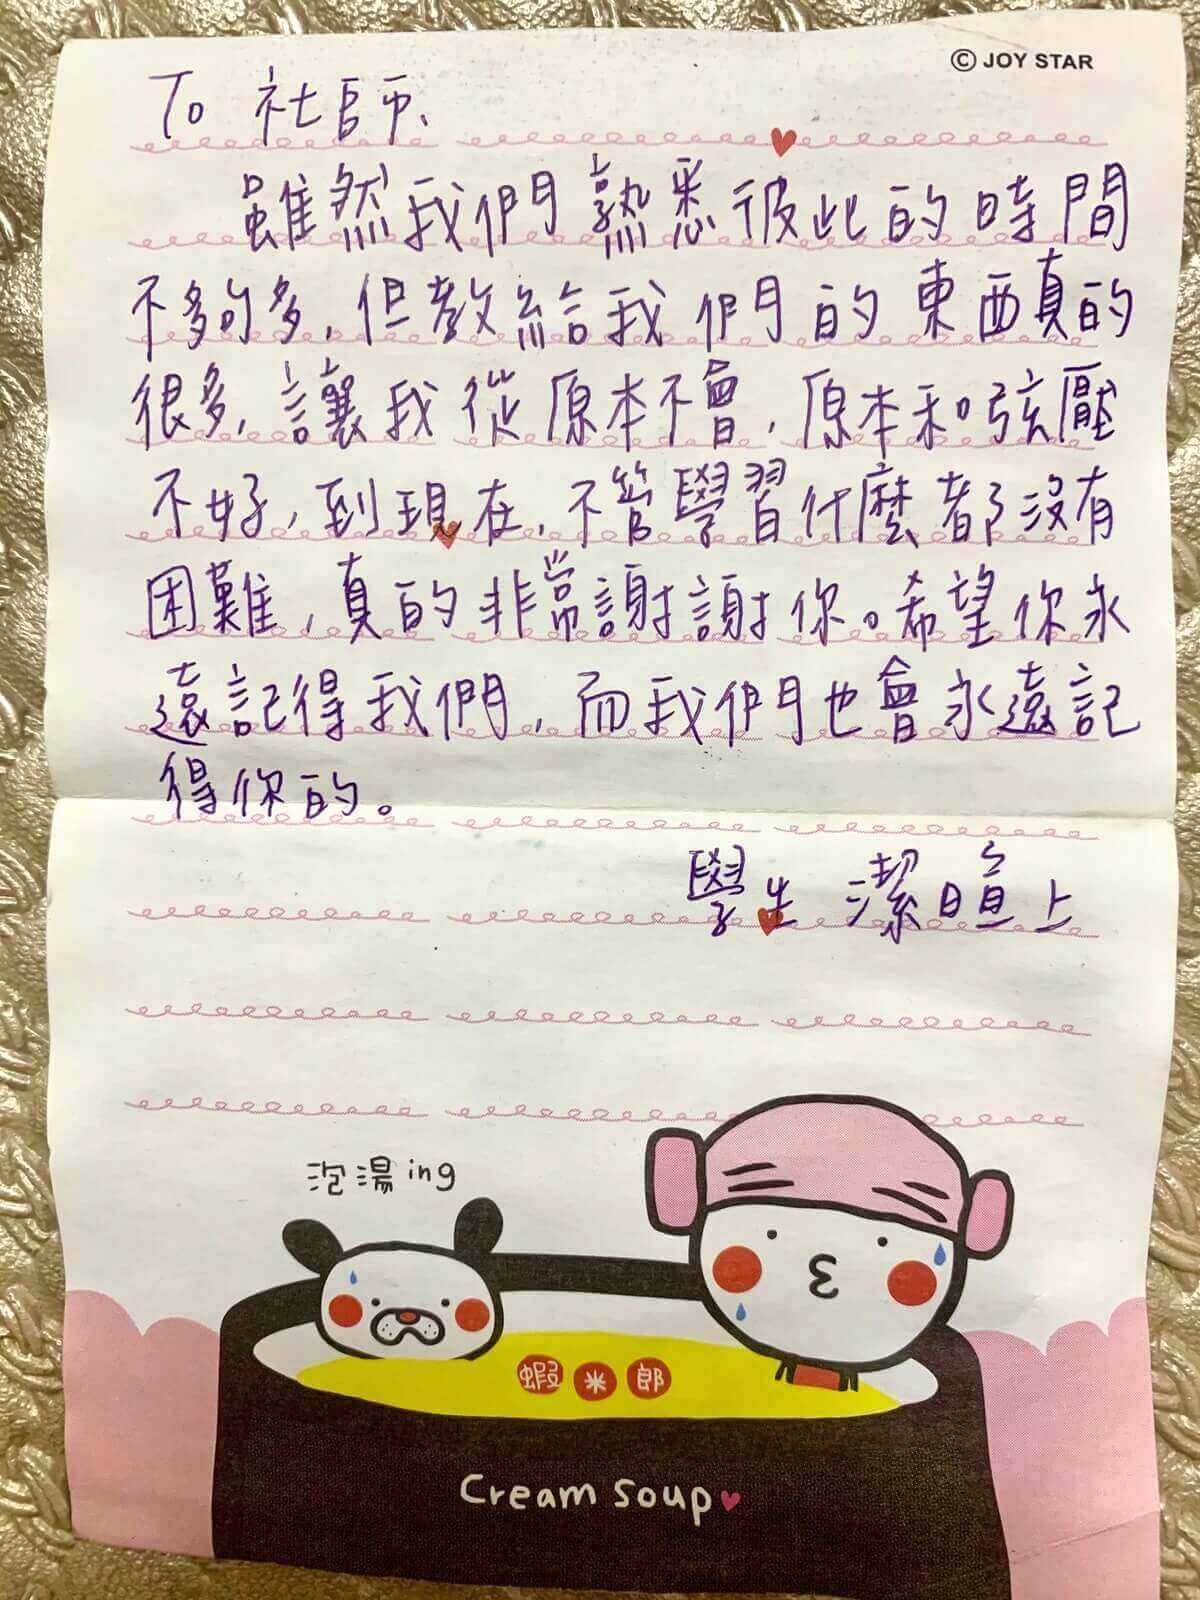 © JOY STAR
To 社師、
雖然我們熟悉彼此的時間
不夠多，但教給我們的東西真的
很多，讓我從原本不會，原本和弦壓
不好，到現在，不管學習什麼都沒有
困難，真的非常謝謝你。希望你永
遠記得我們，而我們也會永遠記
得你的。
學生 潔暄上
泡湯ing
蝦米郎
Cream Soup